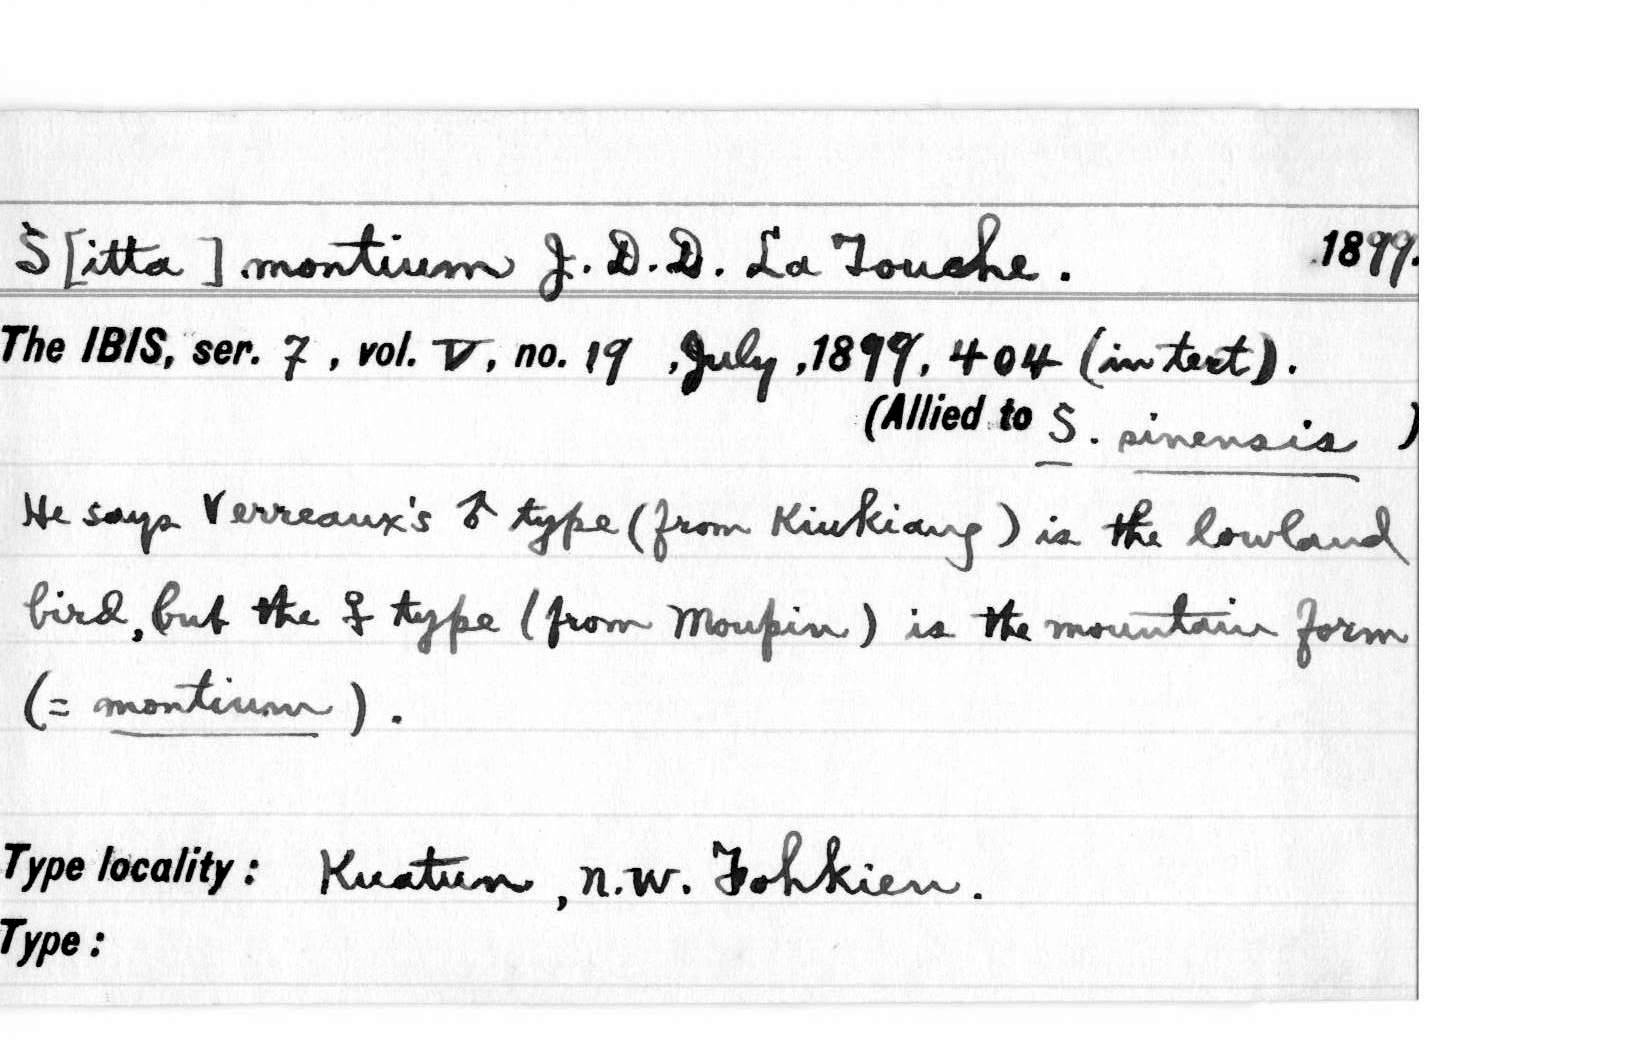 S[itta] montium J. D. D. La Touche. 1899.
The IBIS, ser. 7, vol. V, no. 19, July, 1899, 404 (in text).
(Allied to S. sinensis)
He says Verreaux's ♂ type (from Kiukiang) is the lowland
bird, but the ♀ type (from Moupin) is the mountain form
(= montium).
Type locality: Kuatun, n.w. Fohkien.
Type: